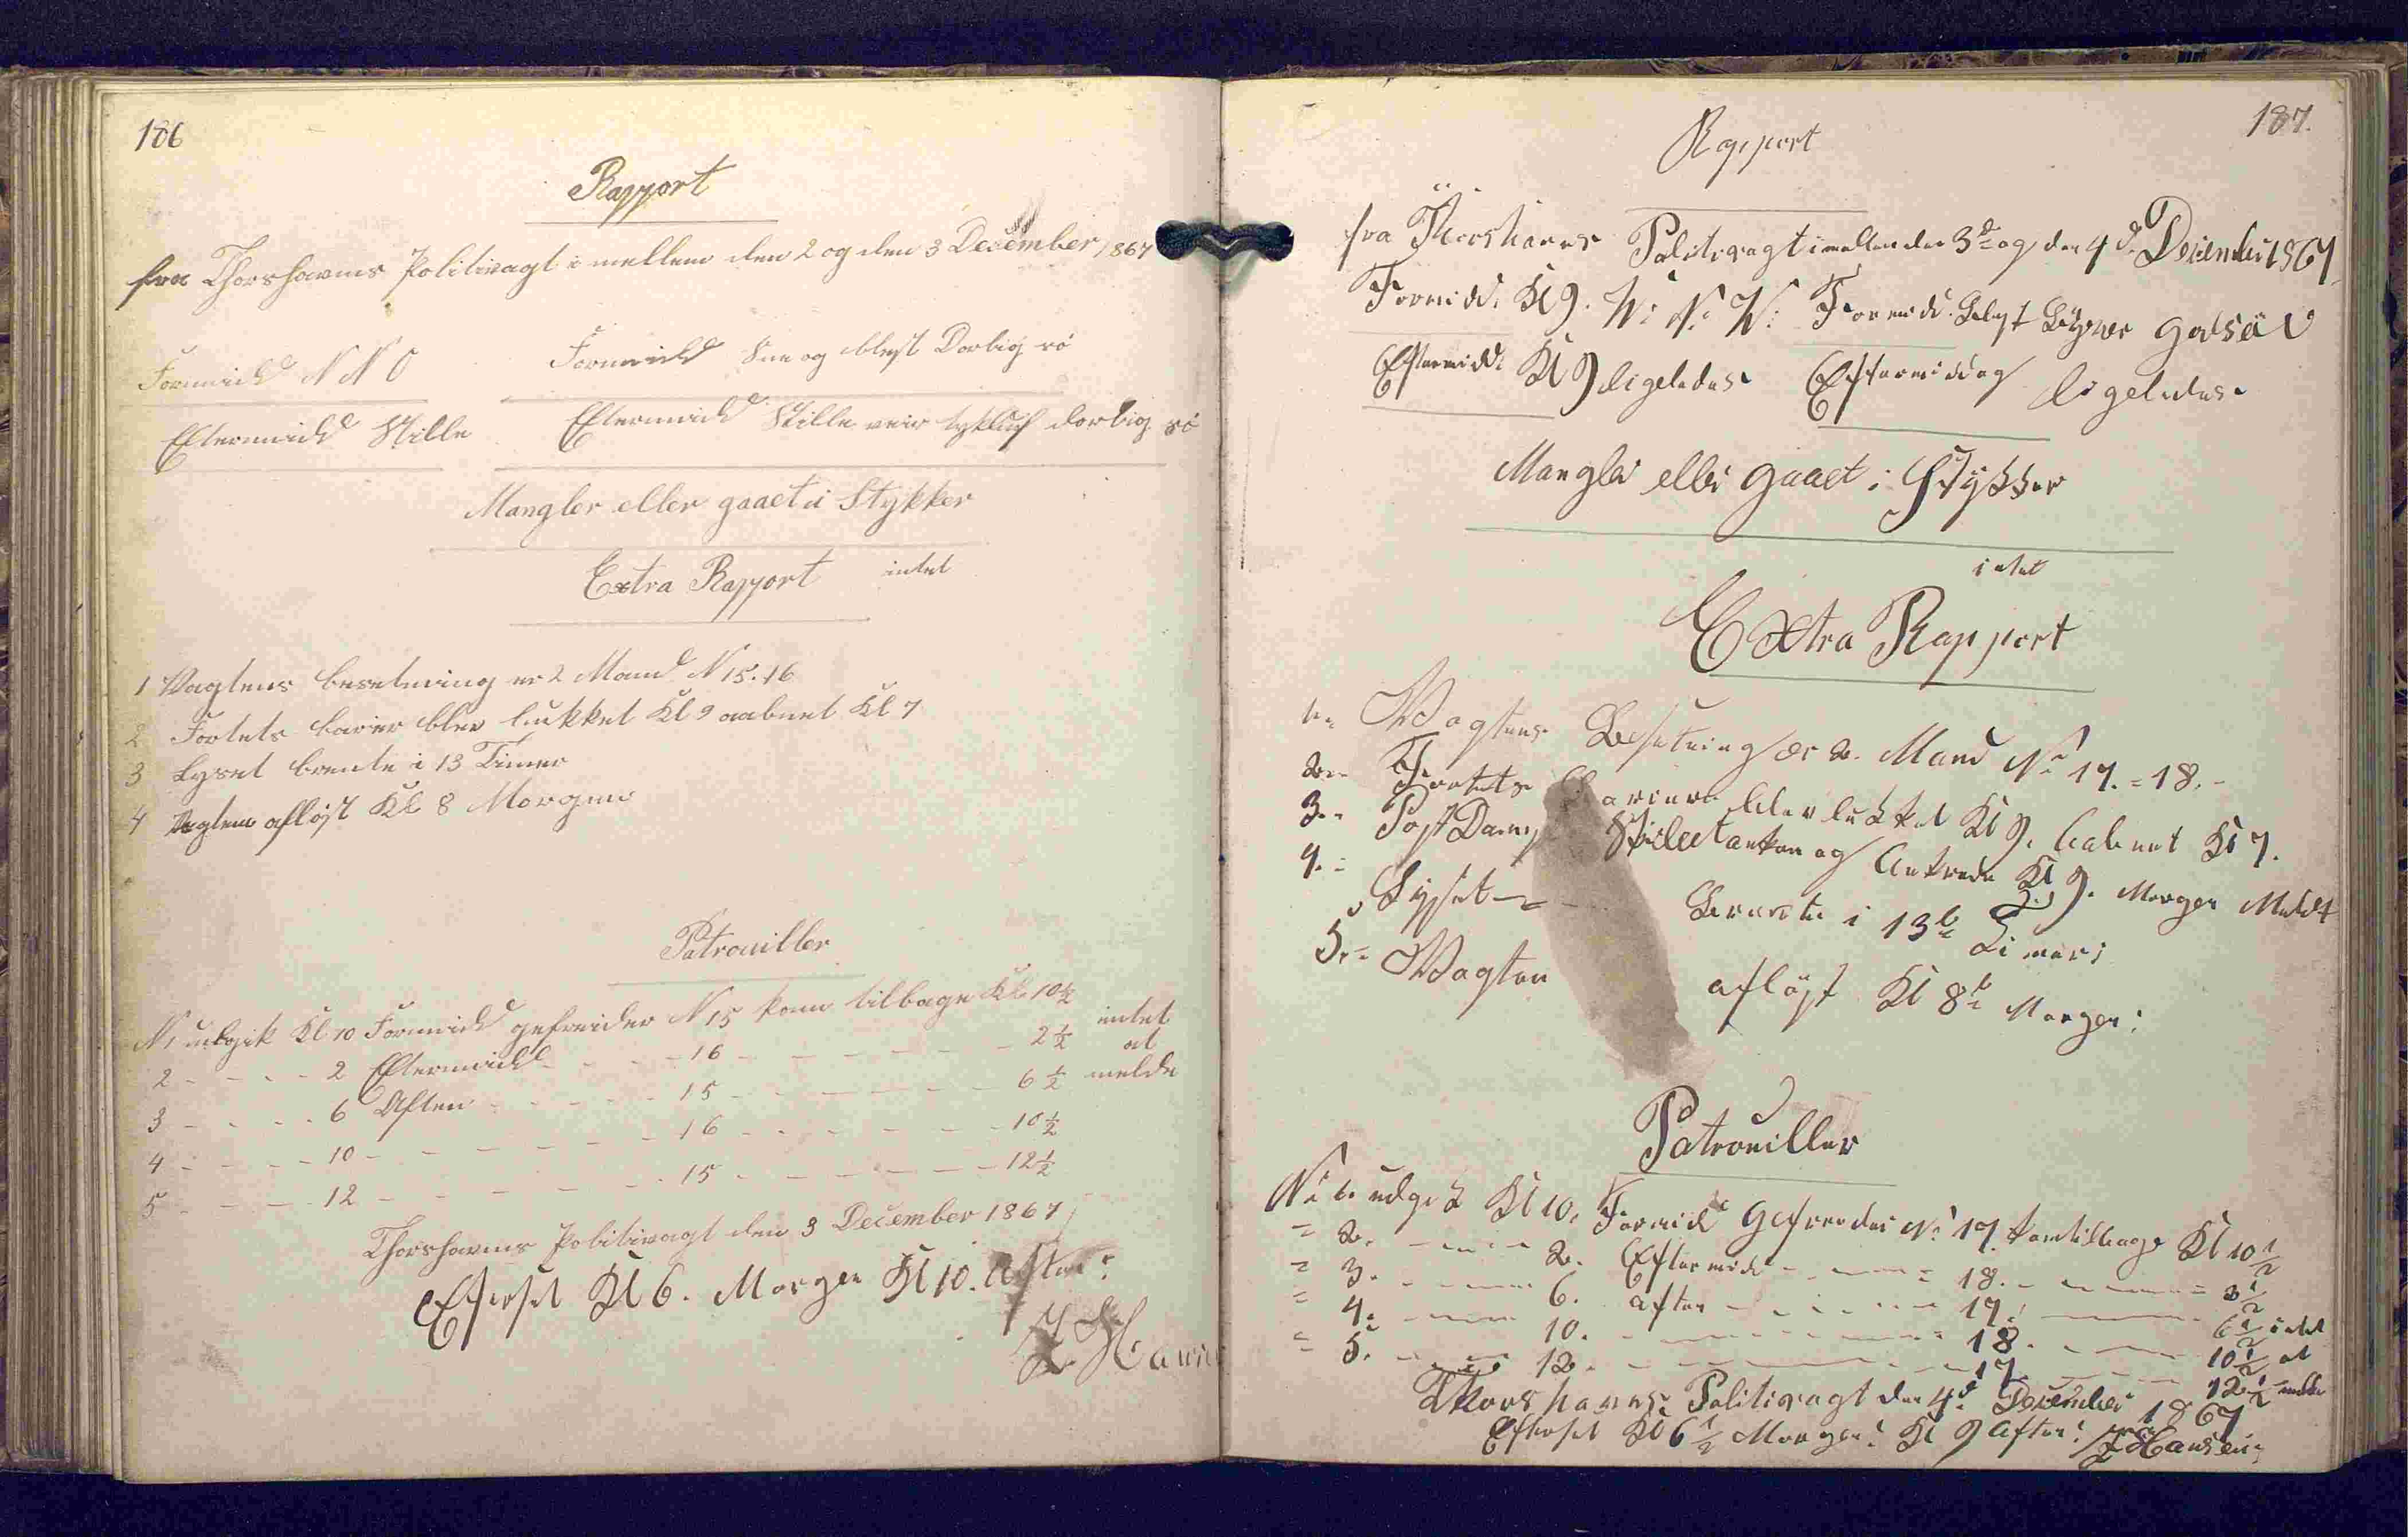 186
Rapport
fra Thorshavns Politivagt imellem den 2 og den 3 December 1867
Formidd N N O Formidd Sne og blest Dorlig sö
Eftermidd Stille Eftermidd Stille veir tykluft dorlig sö
Mangler eller gaaet i Stykker
intet
Extra Rapport
1 Vagtens besetning er 2 Mand N 15. 16
2 Fortets barier blev lukket Kl 9 aabnet Kl 7
3 Lyset brente i 13 Timer
4 Vagten aflöst Kl 8 Morgen
Patrouiller
N 1 udgik Kl 10 Formidd gefreider N 15 kom tilbage Kl 10½ intet
2 - - - - 2 Eftermidd - - - 16 - - - - - 2½ at
3 - - - - 6 Aften - - - - 15 - - - - - 6½ melde
4 - - - - 10 - - - - - 16 - - - - - 10½
5 - - - - 12 - - - - - 15 - - - - - 12½
Thorshavns Politivagt den 3 December 1867
Efterset Kl 6. Morgen Kl 10. Aften:
187.
Rapport
fra Thorshavns Politivagt imellem den 3d og den 4d December 1867
Formidd. Kl 9. V: N: V: Formidd. Blest Byver god sö
Eftermidd. Kl 9 ligeledes Eftermiddag ligeledes
Mangler eller gaaet i Stykker
intet
Extra Rapport
1. Vagtens Besetning er 2. Mand No 17. = 18. -
2. Fortets Bariere blev lukket Kl 9. aabnet Kl 7.
3. Post Damp Kl 9. Morgen
4. Lyset - - Brente i 13 Timer;
5. Vagten aflöst Kl 8 Morgen:
Patrouiller
No 1. udgik Kl 10. Formid Gefreider No 17. kom tilbage Kl 10½
= 2. - - - 2. Eftermidd - - - 18. - - - = 2½
= 3. - - - 6. aften - - - - 17. - - - 6½ intet
= 4. - - - 10. - - - - - 18. - - - 10½ at
= 5. - - - 12. - - - - - 17. - - - 12½ melde
Thorshavns Politivagt den 4d December 1867
Efterset Kl 6½ Morgen: Kl 9 Aften: Hansen